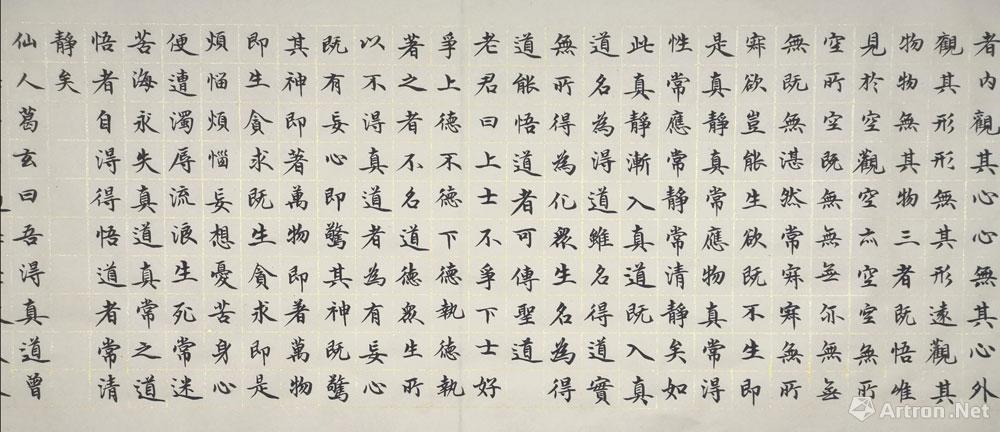 者内觀其心心無其心外
觀其形形無其形遠觀其
物物無其物三者既悟惟
見於空觀空亦空空無所
空所空既無無無亦無無
無既無湛然常寂寂無所
寂欲豈能生欲既不生即
是真靜真常應物真常得
性常應常靜常清靜矣如
此真靜漸入真道既入真
道名為得道雖名得道實
無所得為化眾生名為得
道能悟道者可傳聖道
老君曰上士不爭下士好
爭上德不德下德執德執
著之者不名道德眾生所
以不得真道者為有妄心
既有妄心即驚其神既驚
其神即著萬物即著萬物
即生貪求既生貪求即是
煩惱煩惱妄想憂苦身心
便遭濁辱流浪生死常迷
苦海永失真道真常之道
悟者自得得悟道者常清
靜矣
仙人葛玄曰吾得真道曾
Artron.Net